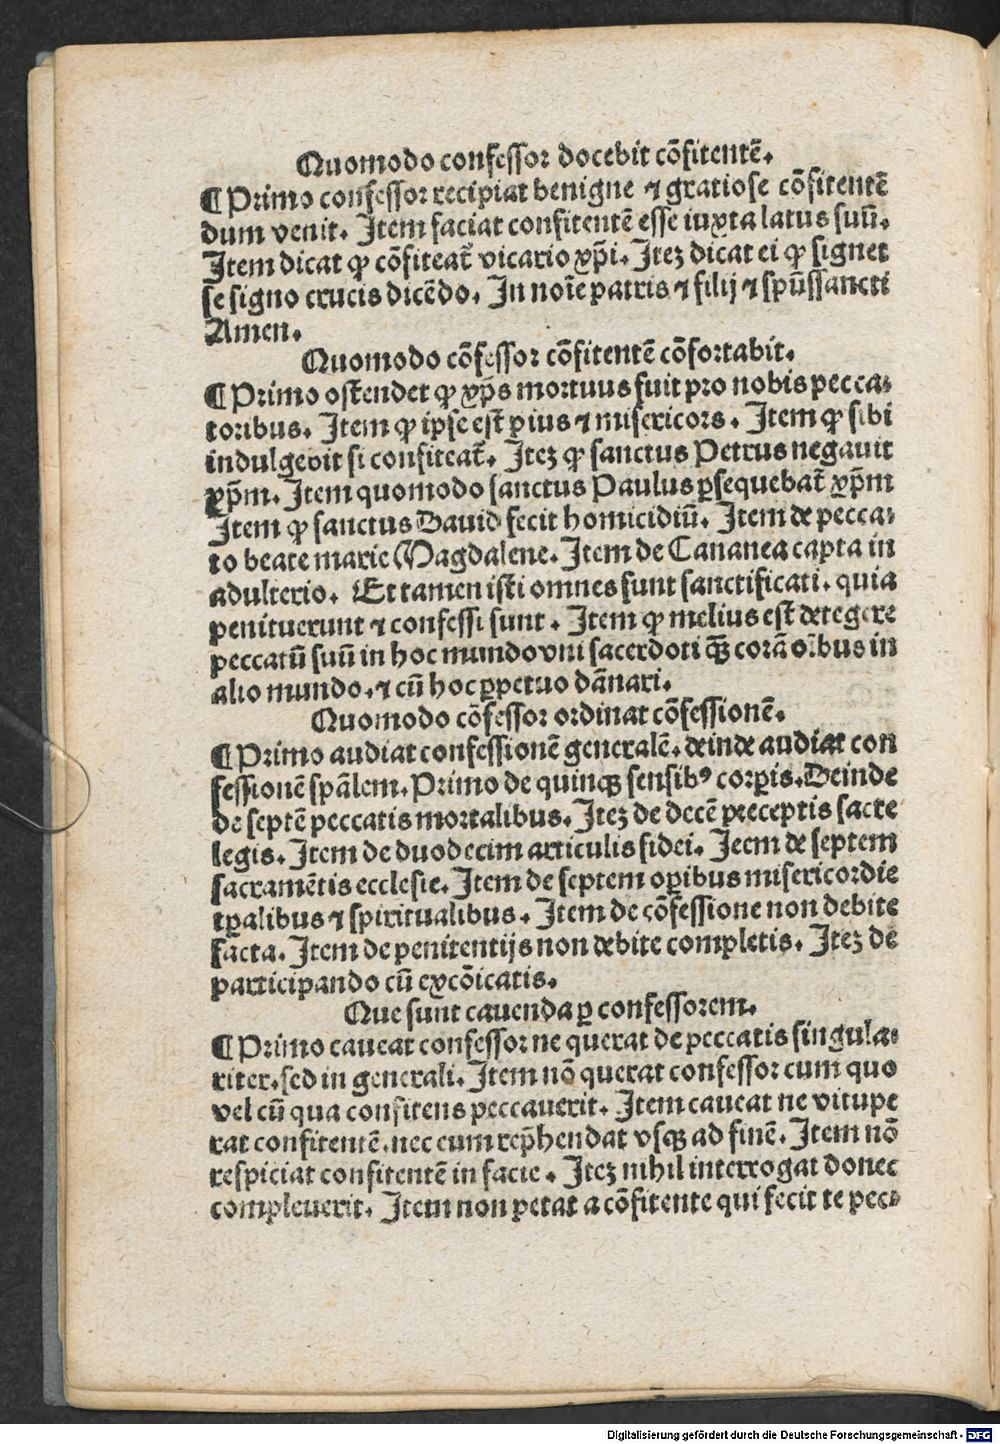 Quomodo confessor docebit cōfitentē.
¶ Primo confessor recipiat benigne ⁊ gratiose cōfitentē
dum venit. Item faciat confitentē esse iuxta latus suū.
Item dicat ꝙ cōfiteat᷑ vicario xp̄i. Iteꝫ dicat ei ꝙ signet
se signo crucis dicēdo. In noīe patris ⁊ filij ⁊ spūssancti
Amen.
Quomodo cōfessor cōfitentē cōfortabit.
¶ Primo ostendet ꝙ xp̄s mortuus fuit pro nobis pecca⸗
toribus. Item ꝙ ipse est pius ⁊ misericors. Item ꝙ sibi
indulgebit si confiteat᷑. Iteꝫ ꝙ sanctus Petrus negauit
xp̄m. Item quomodo sanctus Paulus ꝑsequebat᷑ xp̄m
Item ꝙ sanctus Dauid fecit homicidiū. Item de pecca⸗
to beate marie Magdalene. Item de Cananea capta in
adulterio. Et tamen isti omnes sunt sanctificati. quia
penituerunt ⁊ confessi sunt. Item ꝙ melius est detegere
peccatū suū in hoc mundo vni sacerdoti q̄ꝫ corā oībus in
alio mundo. ⁊ cū hoc ꝑpetuo dānari.
Quomodo cōfessor ordinat cōfessionē.
¶ Primo audiat confessionē generalē. deinde audiat con
fessionē spālem. Primo de quinqꝫ sensibꝰ corꝑis. Deinde
de septē peccatis mortalibus. Iteꝫ de decē preceptis sacre
legis. Item de duodecim articulis fidei. Jeem de septem
sacramētis ecclesie. Item de septem oꝑibus misericordie
tꝑalibus ⁊ spiritualibus. Item de cōfessione non debite
facta. Item de penitentijs non debite completis. Iteꝫ de
participando cū excōicatis.
Que sunt cauenda ꝑ confessorem.
¶ Primo caueat confessor ne querat de peccatis singula⸗
riter. sed in generali. Item nō querat confessor cum quo
vel cū qua confitens peccauerit. Item caueat ne vitupe
rat confitentē. nec eum rep̄hendat vsqꝫ ad finē. Item nō
respiciat confitentē in facie. Iteꝫ nihil interrogat donec
compleuerit. Item non petat a cōfitente qui fecit te pec⸗
Digitalisierung gefördert durch die Deutsche Forschungsgemeinschaft - DFG